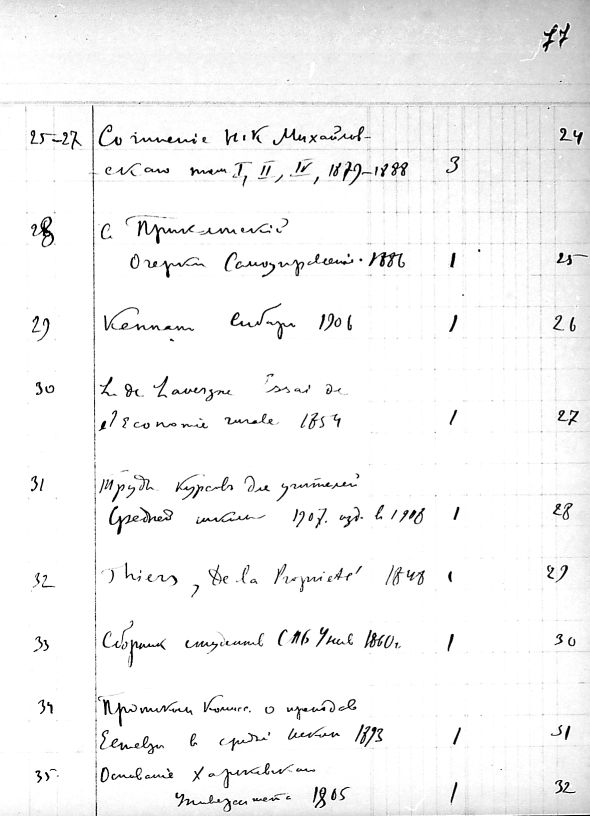 77
25-27 Сочиненіе Н К Михайлов- 24
скаго том I, II, IV, 1879-1888 3
28 С. Приклонскій
Очерки Самоуправленія 1886 1 25
29 Кеннан Сибирь 1906 1 26
30 L. de Lavergne Essai de
l'Economie rurale 1854 1 27
31 Труды Курсовъ для учителей
Средней школы 1907. изд. в 1908 1 28
32 Thiers, De la Propriété 1848 1 29
33 Сборник студентов СПБ Унив 1860г. 1 30
34 Протоколы Комис. о преподав
в средн. 1893 1 31
35. Основаніе Харьковскаго
Университета 1905 1 32